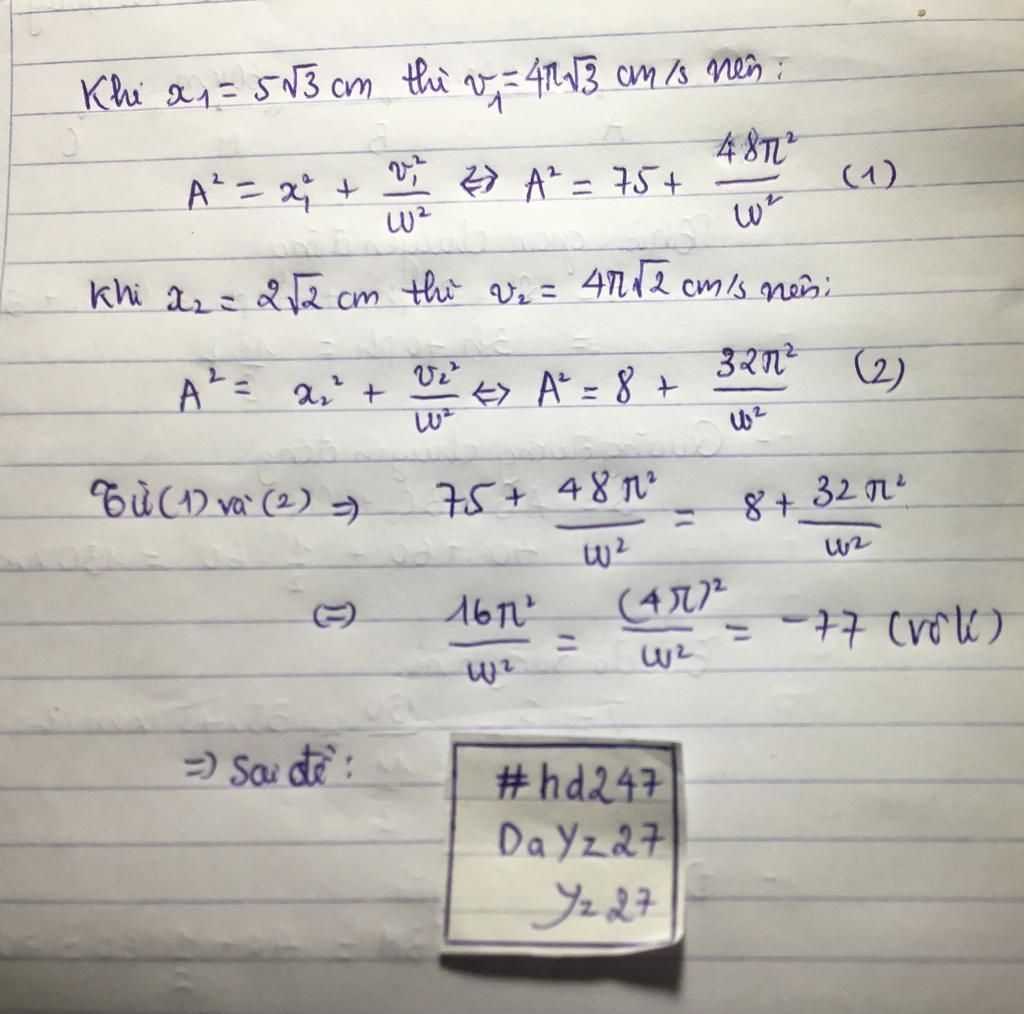 Khi x₁ = 5√3 cm thì v₁ = 4π√3 cm/s nên:
A² = x₁² + v₁²/ω² ⇔ A² = 75 + 48π²/ω² (1)
Khi x₂ = 2√2 cm thì v₂ = 4π√2 cm/s nên:
A² = x₂² + v₂²/ω² ⇔ A² = 8 + 32π²/ω² (2)
Từ (1) và (2) ⇒ 75 + 48π²/ω² = 8 + 32π²/ω²
(=) 16π²/ω² = (4π)²/ω² = -77 (vô lí)
=) Sai đề:
#hd247
DaYz27
Yz27